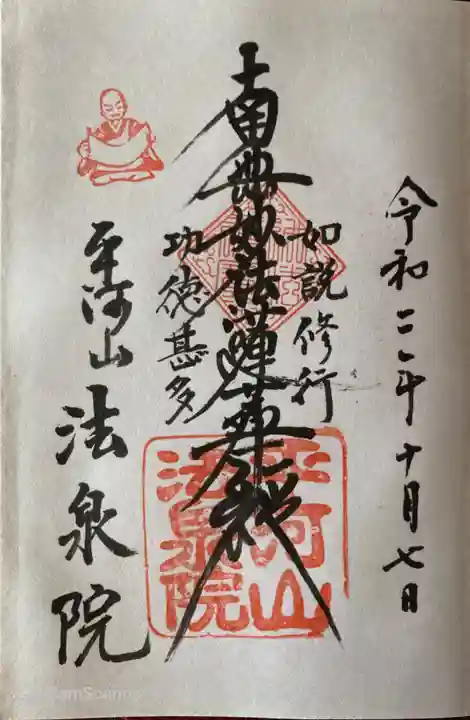 令和二年十月七日
如説修行
南無妙法蓮華経
功徳甚多
平河山 法泉院
平河山
法泉院
CamScanner